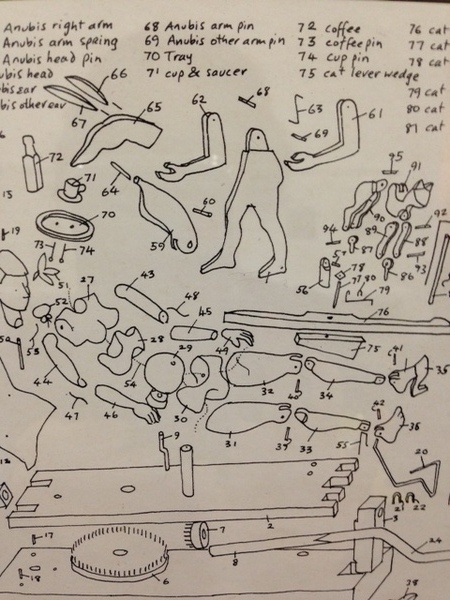 Anubis right arm
Anubis arm spring
Anubis head pin
ubis head
ubis ear
bis other ear
68 Anubis arm pin
69 Anubis other arm pin
70 Tray
71 cup & saucer
72 coffee
73 coffee pin
74 cup pin
75 cat lever wedge
76 cat
77 cat
78 cat
79 cat
80 cat
81 cat
66
67
65
62
68
63
61
69
72
71
64
5
91
70
60
59
90
92
94
89
88
19
73
74
87
57
78
73
56
77
80
86
79
1
51
27
43
48
76
52
45
53
28
49
75
41
44
54
29
32
34
35
40
47
46
30
42
36
31
39
33
55
9
20
21
22
3
2
17
7
24
8
6
18
38